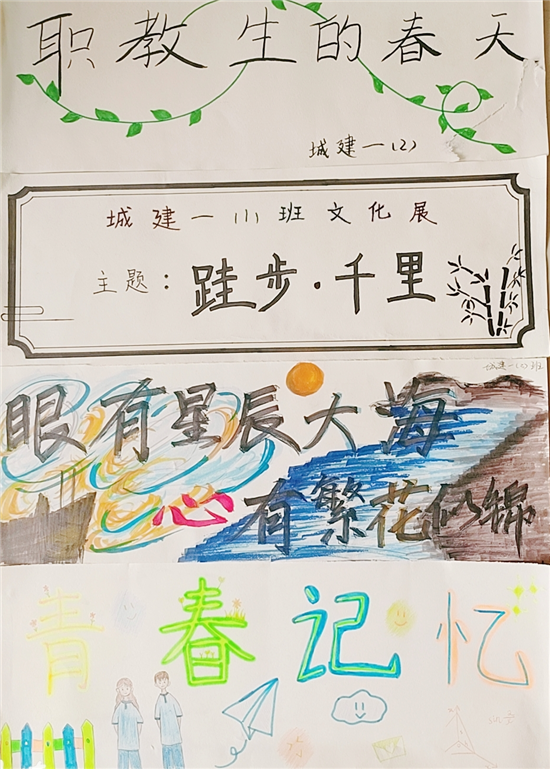 职教生的春天
城建一(2)
城建一(1)班文化展
主题:跬步·千里
城建一(1)班
眼有星辰大海
心有繁花似锦
青春记忆